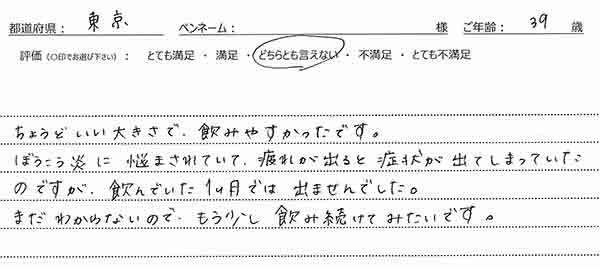 都道府県： 東京 ペンネーム： 様 ご年齢： 39 歳
評価（○印でお選び下さい）： とても満足 ・ 満足 ・ どちらとも言えない ・ 不満足 ・ とても不満足
ちょうどいい大きさで、飲みやすかったです。
ぼうこう炎に悩まされていて、疲れが出ると症状が出てしまっていた
のですが、飲んでいた1ヶ月では出ませんでした。
まだわからないので、もう少し飲み続けてみたいです。